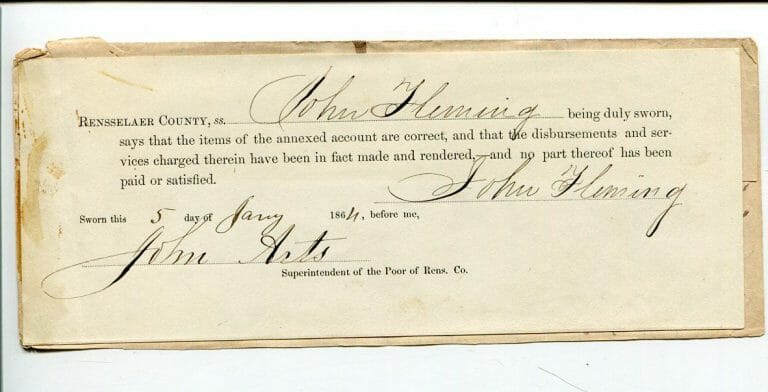 RENSSELAER COUNTY, ss. John Fleming being duly sworn,
says that the items of the annexed account are correct, and that the disbursements and ser-
vices charged therein have been in fact made and rendered, and no part thereof has been
paid or satisfied.
John Fleming
Sworn this 5 day of Jany 1864, before me,
John Arts
Superintendent of the Poor of Rens. Co.